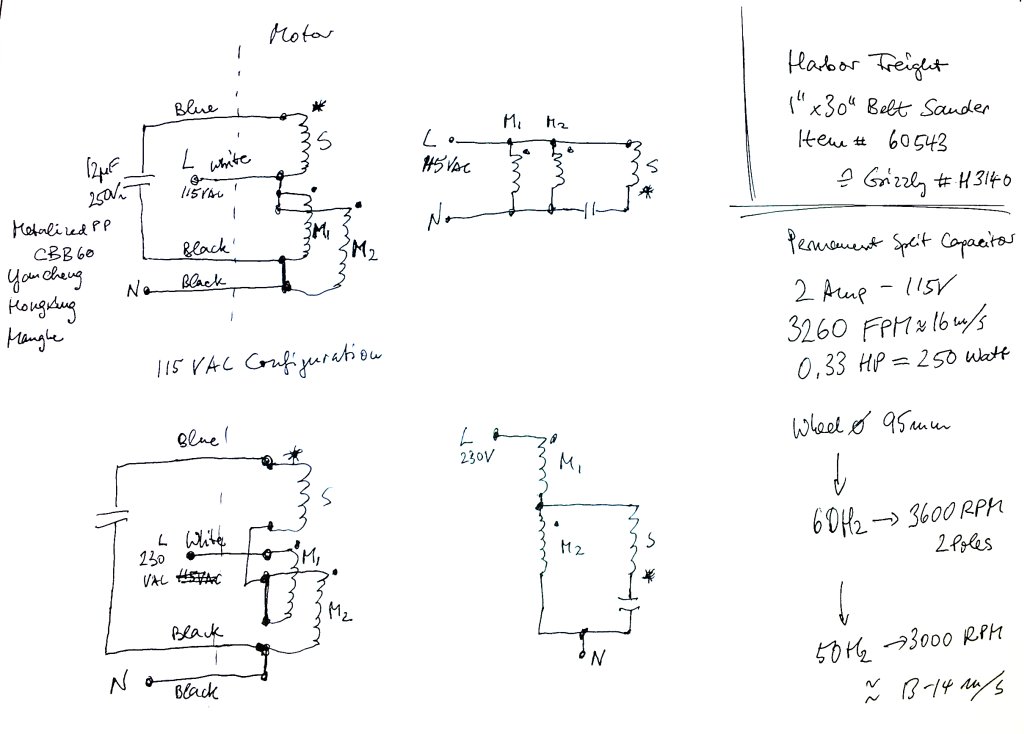 Motor
Blue
*
S
L White
115VAC
12µF
250V~
Metalized PP
CBB60
Yancheng
M1
M2
Black
N Black
115 VAC Configuration
L
115VAC
M1 M2
S
*
N
Harbor Freight
1" x 30" Belt Sander
Item # 60543
≙ Grizzly # H3140
Permanent Split Capacitor
2 Amp - 115V
3260 FPM ≈ 16 m/s
0,33 HP = 250 Watt
Wheel ⌀ 95mm
60Hz → 3600 RPM
2 Poles
50Hz → 3000 RPM
≈ 13-14 m/s
Blue!
*
S
L White
230
VAC 115VAC
M1
M2
Black
N
Black
L
230V
M1
M2
S
*
N